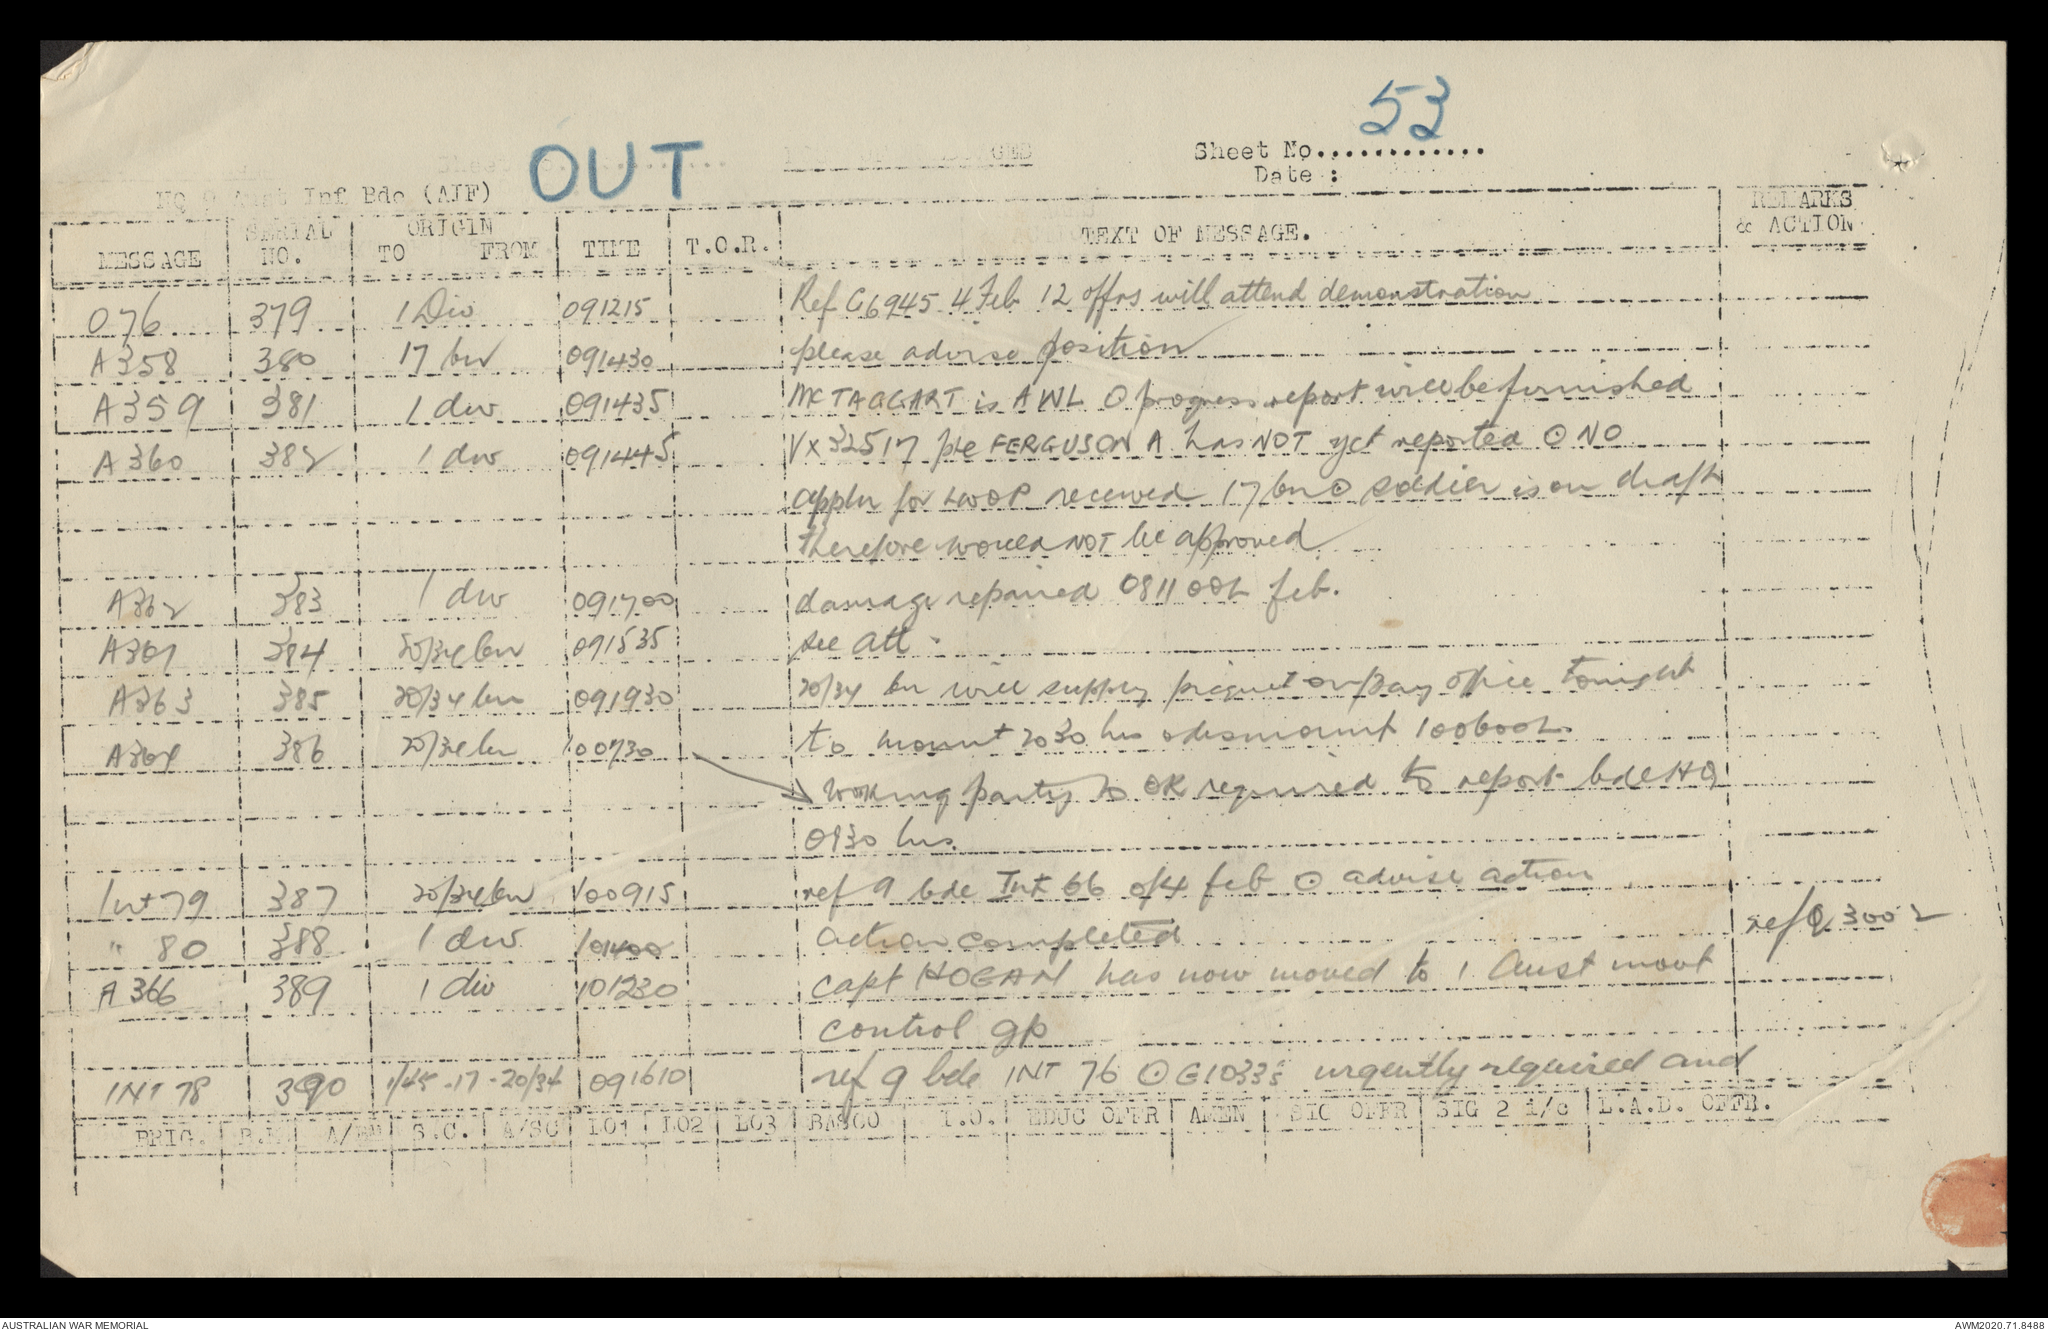 53
OUT
LOG OF MESSAGES
Sheet No.............
Date :
HQ 9 Aust Inf Bde (AIF)
MESSAGE SERIAL NO. ORIGIN TO FROM TIME T.O.R. TEXT OF MESSAGE. REMARKS & ACTION
O76 379 1 Div 091215 Ref G6945 4 Feb 12 offrs will attend demonstration
A358 380 17 bn 091430 please advise position
A359 381 1 div 091435 McTAGGART is AWL O progress report will be furnished
A360 382 1 div 091445 VX32517 pte FERGUSON A has NOT yet reported O NO
appln for LWOP received 17 bn O soldier is on draft
therefore would NOT be approved
A362 383 1 div 091700 damage repaired 081100L feb.
A361 384 20/34 bn 091535 see att
A363 385 20/34 bn 091930 20/34 bn will supply piquet on pay office tonight
A364 386 20/34 bn 100730 to mount 2030 hrs & dismount 100600L
working party 20 OR required to report bde HQ
0830 hrs.
Int 79 387 20/34 bn 100915 ref 9 bde Int 66 of 4 feb O advise action
" 80 388 1 div 101400 action completed ref Q 3002
A366 389 1 div 101230 capt HOGAN has now moved to 1 Aust movt
control gp
INT 78 390 1/45-17-20/34 091610 ref 9 bde INT 76 O G10335 urgently required and
BRIG. B.M. A/BM S.C. A/SC LO1 LO2 LO3 BASCO I.O. EDUC OFFR AMEN SIG OFFR SIG 2 i/c L.A.D. OFFR.
AUSTRALIAN WAR MEMORIAL
AWM2020.71.8488